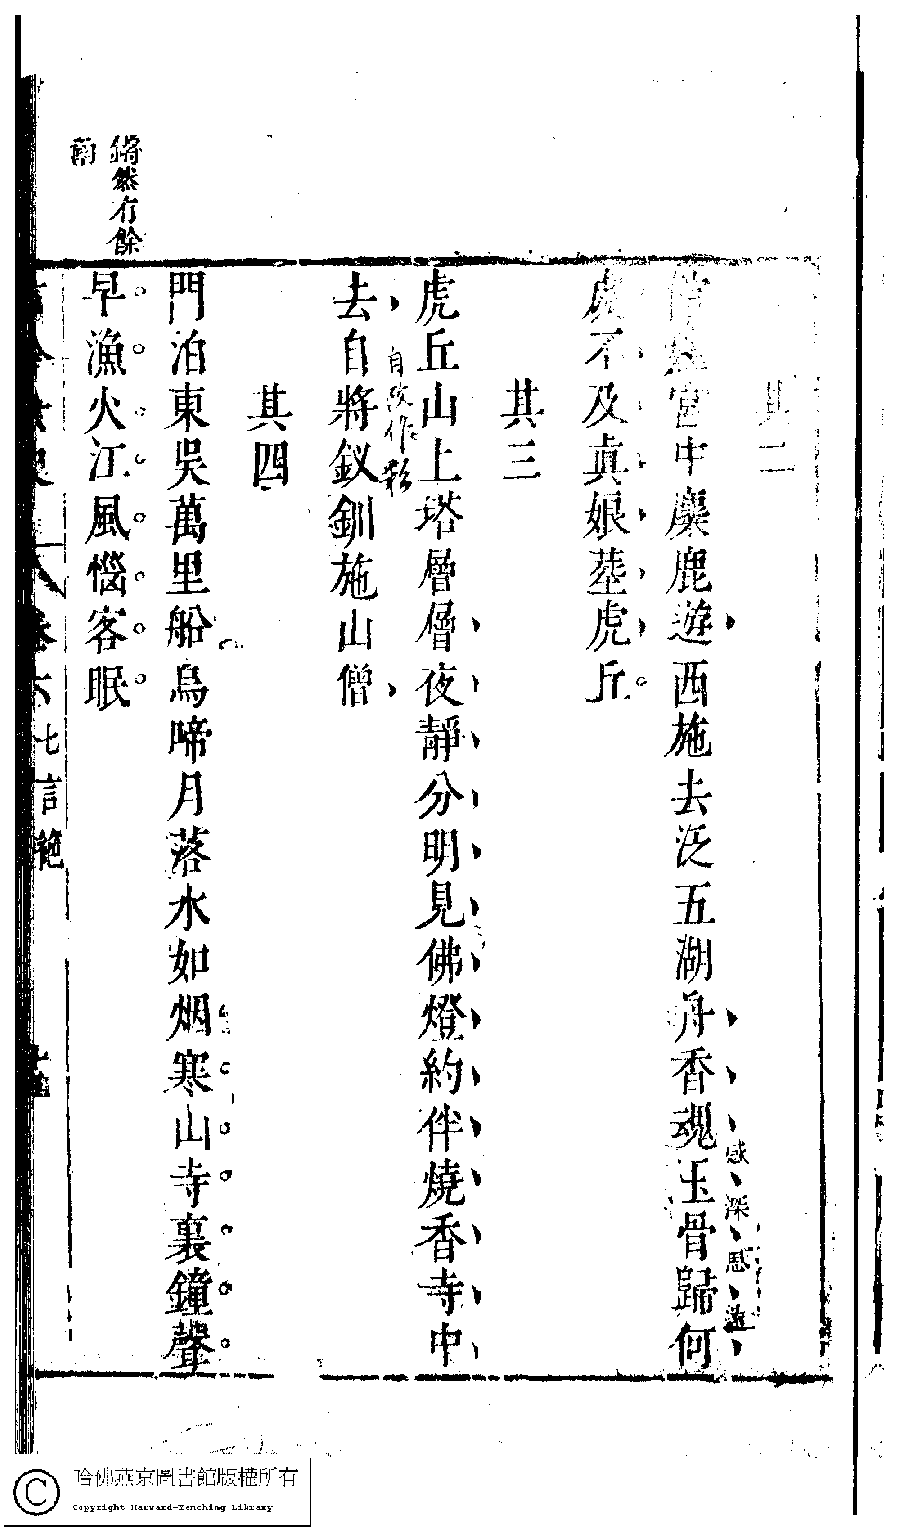 其二
館娃宮中麋鹿遊西施去泛五湖舟香魂玉骨歸何
感深思
處不及真娘塟虎丘
其三
虎丘山上塔層層夜靜分明見佛燈約伴燒香寺中
去自將釵釧施山僧
其四
門泊東吳萬里船烏啼月落水如烟寒山寺裏鐘聲
早漁火江風惱客眠
鏘然有餘
韻
卷六七言絕
哈佛燕京圖書館版權所有
Copyright Harvard-Yenching Library